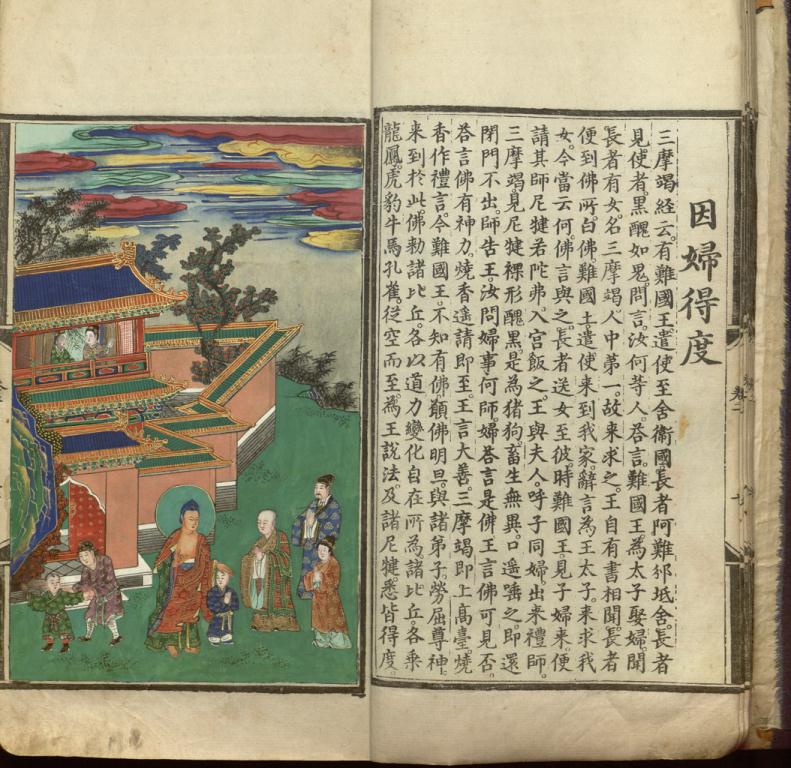 因婦得度
三摩竭經云。有難國王。遣使至舍衛國。長者阿難邠坻舍。長者
見使者。黑醜如鬼。問言。汝何等人。荅言。難國王。為太子娶婦。聞
長者有女。名三摩竭。人中第一。故來求之。王自有書相聞。長者
便到佛所白佛。難國土遣使來到我家。辭言為王太子。來求我
女。今當云何。佛言與之。長者送女至彼。時難國王。見子婦來。便
請其師尼犍若陀弗。入宮飯之。王與夫人。呼子同婦。出來禮師。
三摩竭。見尼犍。裸形醜黑。是為猪狗。畜生無異。口遙唾之。即還
閉門不出。師告王。汝問婦事何師。婦荅言是佛。王言佛可見否。
荅言佛有神力。燒香遙請即至。王言大善。三摩竭即上高臺。燒
香作禮言。今難國王。不知有佛。願佛明旦。與諸弟子。勞屈尊神。
來到於此。佛勑諸比丘。各以道力變化。自在所為。諸比丘。各乘
龍鳳。虎豹牛馬孔雀。從空而至。為王說法。及諸尼犍。悉皆得度。
卷二